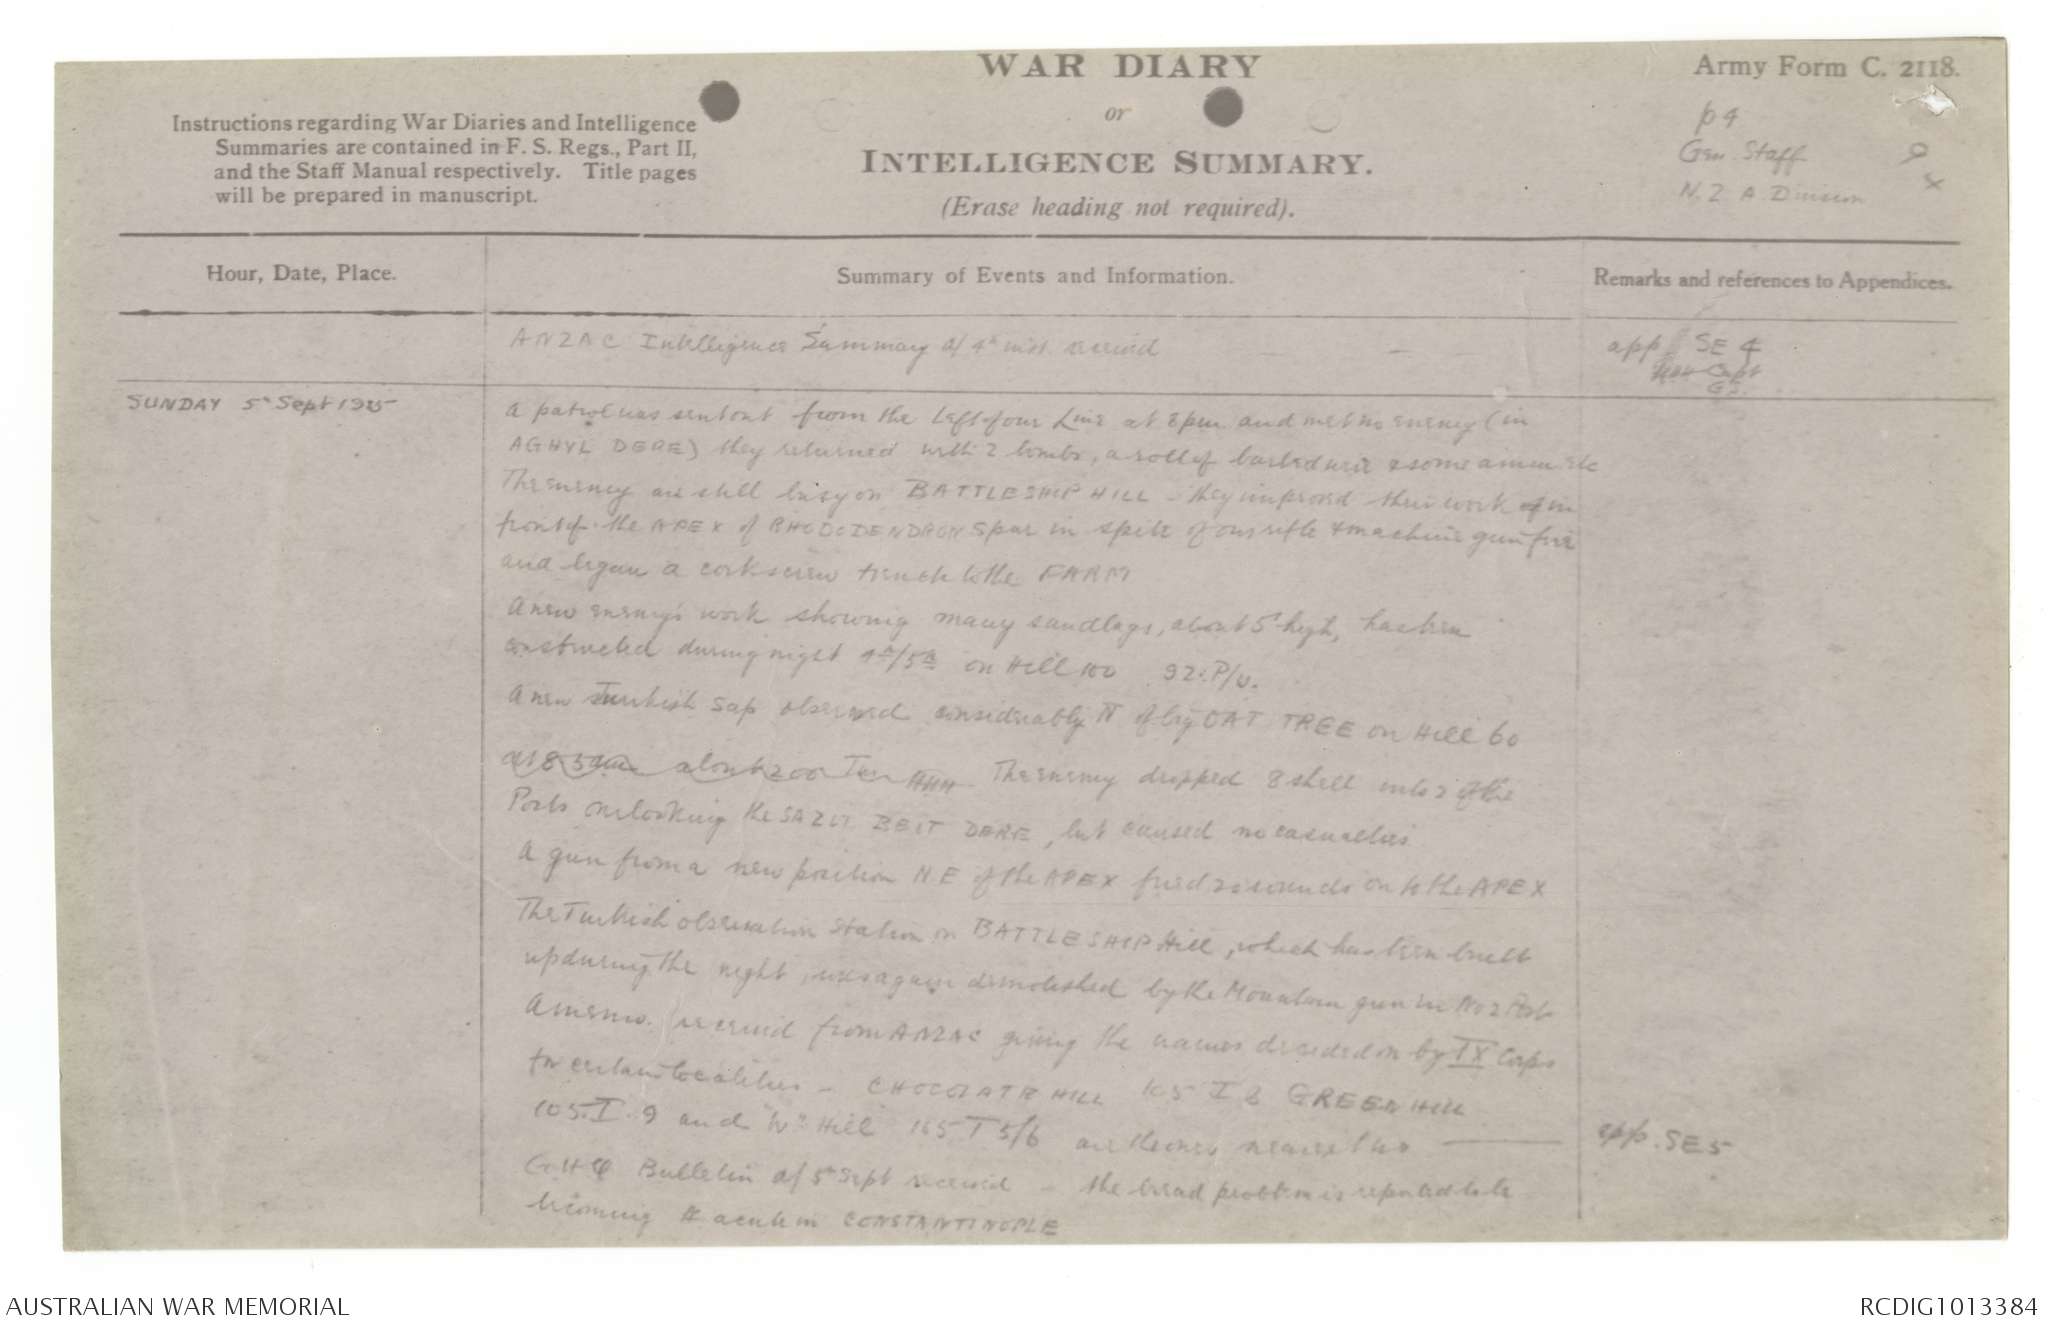 WAR DIARY
or
INTELLIGENCE SUMMARY.
(Erase heading not required).
Army Form C. 2118.
Instructions regarding War Diaries and Intelligence
Summaries are contained in F. S. Regs., Part II,
and the Staff Manual respectively. Title pages
will be prepared in manuscript.
p 4
Gen Staff
N.Z A Division
Hour, Date, Place.
Summary of Events and Information.
Remarks and references to Appendices.
ANZAC Intelligence Summary of 4th inst. received
app SE 4
Capt
GS.
SUNDAY 5th Sept 1915
A patrol was sent out from the Left of our Line at 8pm and met no enemy (in
AGHYL DERE) they returned with 2 bombs, a roll of barbed wire & some ammn etc
The enemy are still busy on BATTLESHIP HILL - they improved their work of in
front of the APEX of RHODODENDRON Spur in spite of our rifle & machine gun fire
and began a corkscrew trench to the FARM
A new enemy's work showing many sandbags, about 5' high, has been
constructed during night 4th/5th on Hill 100 92.P/U.
A new Turkish Sap observed considerably N of big OAT TREE on Hill 60
at 8 5am about 200 The enemy dropped 8 shell into 2 of the
Posts overlooking the SAZLI BEIT DERE, but caused no casualties
A gun from a new position N.E of the APEX fired rounds on to the APEX
The Turkish observation Station on BATTLESHIP Hill, which has been built
up during the night, was again demolished by the Mountain gun in No 2 Post
A memo. received from ANZAC giving the names decided on by IX Corps
for certain localities - CHOCOLATE HILL 105 I 8 GREEN HILL
105.I.9 and "W" Hill 105 T 5/6 are the ones nearest us
app. SE 5
GHQ Bulletin of 5th Sept received - the bread problem is reported to be
becoming acute in CONSTANTINOPLE
AUSTRALIAN WAR MEMORIAL
RCDIG1013384